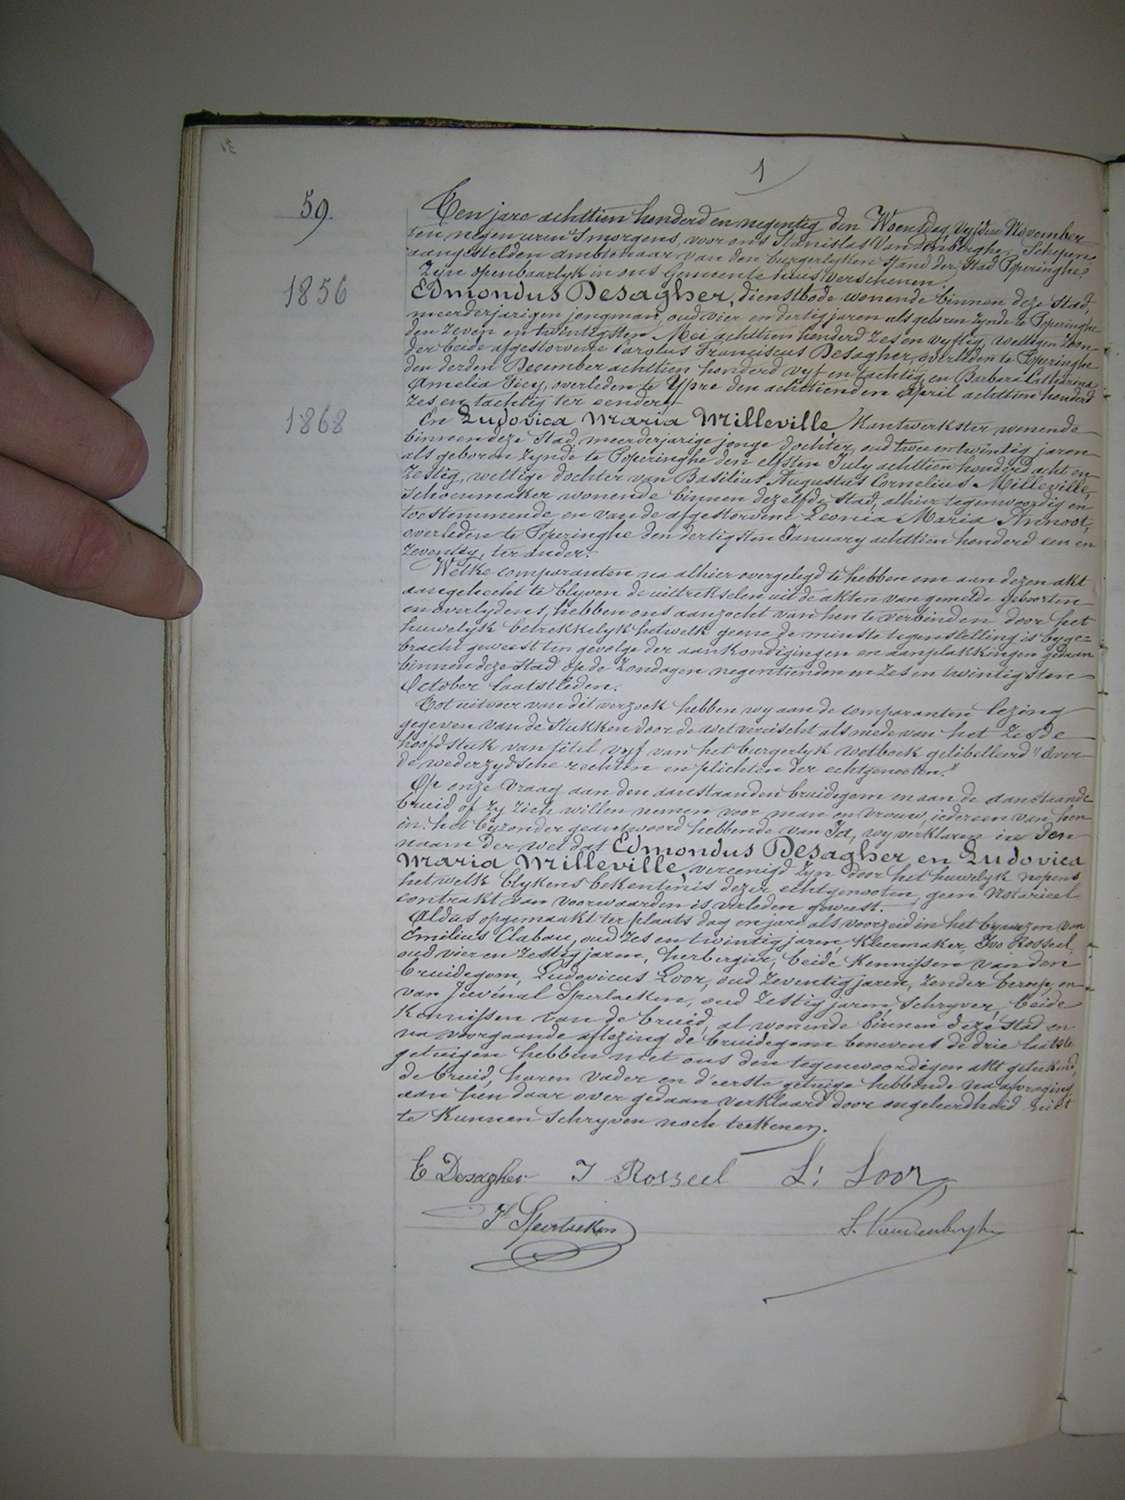 1
59.
Ten jare achttien honderd en negentig den Woensdag, vyfden November
ten negen uren 's morgens, voor ons Stanislas Vandenberghe, Schepen
aangestelden ambtenaar van den burgerlyken stand der Stad Poperinghe,
Zyn openbaarlyk in ons Gemeente huis verschenen:
1856
Edmondus Desagher, dienstbode wonende binnen deze Stad,
meerderjarigen jongman, oud vier en dertig jaren als geboren zynde te Poperinghe
den zeven en twintigsten Mei achttien honderd zes en vyftig, wettigen zoon
der beide afgestorvene Carolus Franciscus Desagher, overleden te Poperinghe
den derden December achttien honderd vyf en tachtig en Barbara Catharina
Amelia Ficy, overleden te Ypre den achttienden April achttien honderd
zes en tachtig ter eender;
1868
En Ludovica Maria Milleville, Kantwerkster wonende
binnen deze Stad, meerderjarige jonge dochter, oud twee en twintig jaren
als geboren zynde te Poperinghe den elfsten July achttien honderd acht en
zestig, wettige dochter van Basilius Augustus Cornelius Milleville,
Schoenmaker wonende binnen dezelfde Stad, alhier tegenwoordig en
toestemmende en van de afgestorvene Leonia Maria Annoot,
overleden te Poperinghe den dertigsten January achttien honderd een en
zeventig, ter ander:
Welke comparanten na alhier overgelegd te hebben om aan dezen akt
aangehecht te blyven de uittrekselen uit de akten van gemelde geboorten
en overlydens, hebben ons aanzocht van hen te verbinden door het
huwelyk betrekkelyk hetwelk geene de minste tegenstelling is byge=
bracht geweest ten gevolge der aankondigingen en aanplakkingen gedaan
binnen deze Stad op de Zondagen negentienden en zes en twintigsten
October laatstleden.
Tot uitvoer van dit verzoek hebben wy aan de comparanten lezing
gegeven van de stukken door de wet vereischt als mede van het zesde
hoofdstuk van titel vyf van het burgerlyk wetboek gelibelleerd "Over
de wederzydsche rechten en plichten der echtgenooten."
Op onze vraag aan den aanstaanden bruidegom en aan de aanstaande
bruid of zy zich willen nemen voor man en vrouw, iedereen van hen
in het byzonder geantwoord hebbende van Ja, wy verklaren in den
naam der wet dat Edmondus Desagher en Ludovica
Maria Milleville, vereenigd zyn door het huwelyk nopens
hetwelk blykens bekentenis dezer echtgenooten, geen Notarieel
contrakt van voorwaarden is verleden geweest.
Aldus opgemaakt ter plaats dag en jare als voorzeid in het bywezen van
Emilius Clabau, oud zes en twintig jaren, Kleermaker, Ivo Rosseel,
oud vier en zestig jaren, herbergier, beide Kennissen van den
bruidegom, Ludovicus Loor, oud zeventig jaren, zonder beroep, en
van Juvénal Sperlaeken, oud zestig jaren, schryver, beide
Kennissen van de bruid, al wonende binnen deze stad en
na voorgaande aflezing de bruidegom benevens de drie laatste
getuigen hebben met ons den tegenwoordigen akt geteekend,
de bruid, haren vader en d'eerste getuige hebbende na afvraging
aan hen daar over gedaan verklaard door ongeleerdheid niet
te Kunnen schryven noch teekenen.
E Desagher I Rosseel L: Loor
Jl Sperlaeken S. Vandenberghe